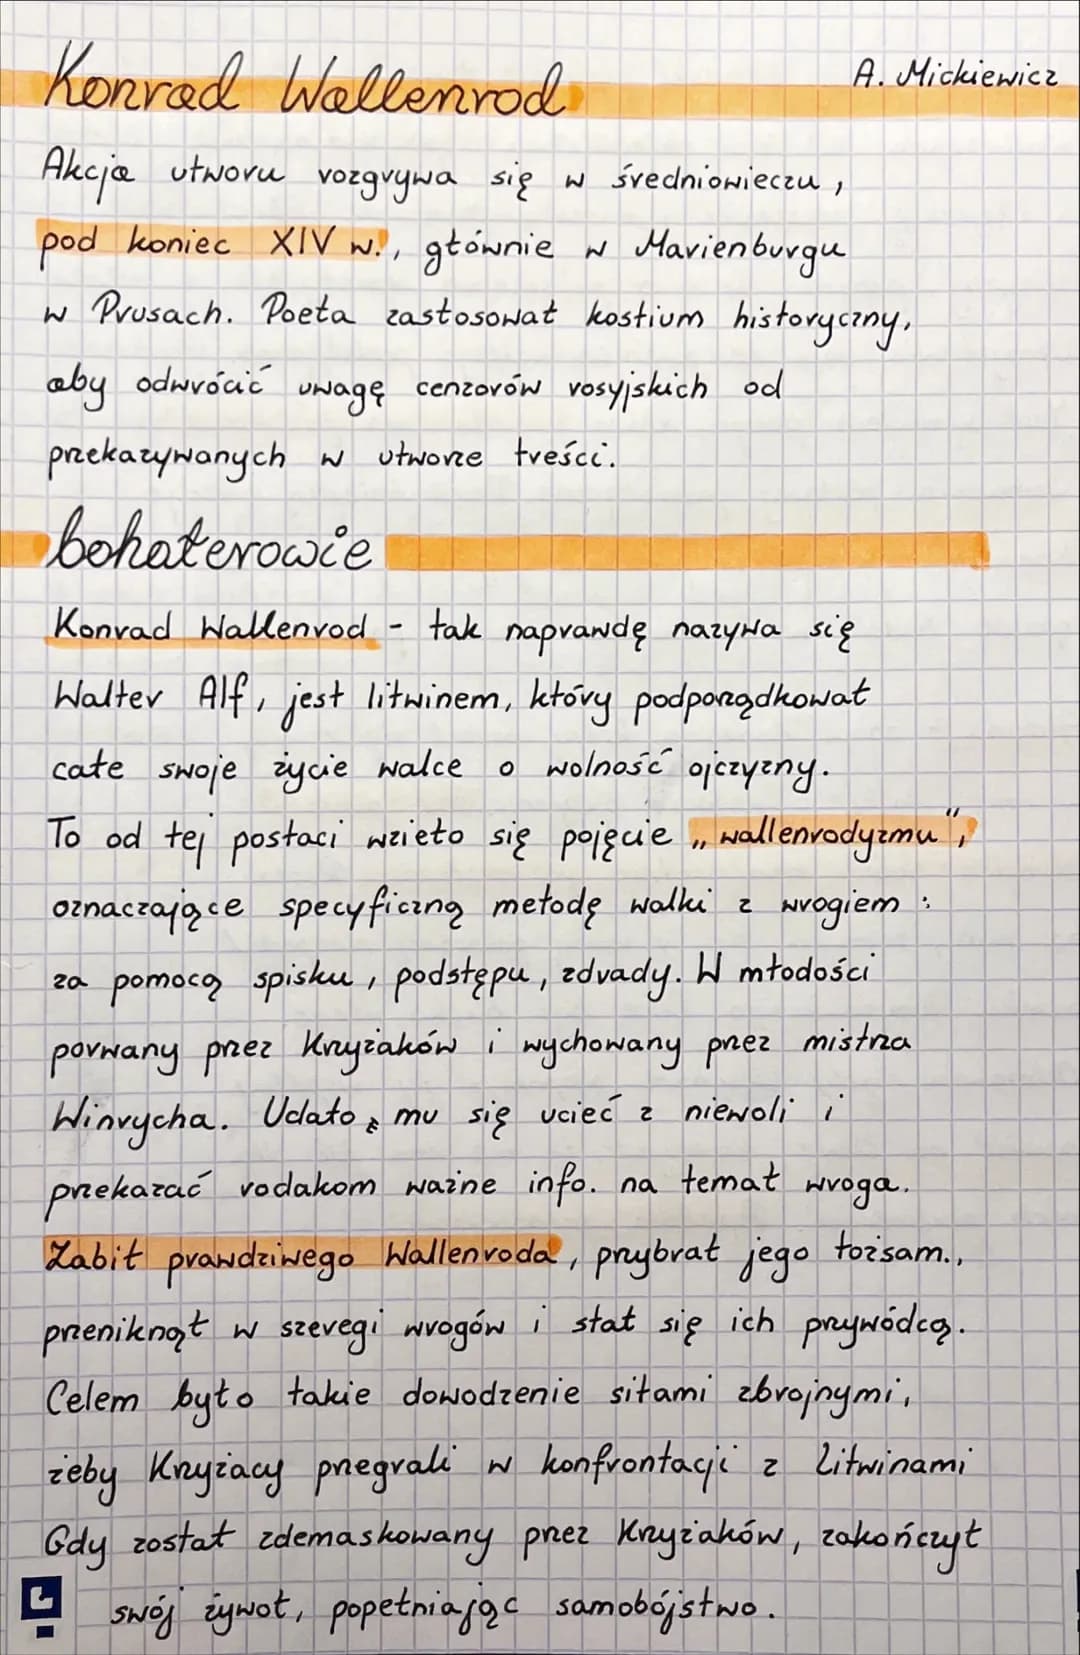 Konrad Wallenrod
A. Mickiewicz
Akcja utworu rozgrywa się w średniowieczu,
pod koniec XIV w., głównie w Marienburgu
w Prusach. Poeta zastosował kostium historyczny,
aby odwrócić uwagę cenzorów rosyjskich od
przekazywanych w utworze treści.
bohaterowie
Konrad Wallenrod - tak naprawdę nazywa się
Walter Alf, jest litwinem, który podporządkował
całe swoje życie walce o wolność ojczyzny.
To od tej postaci wzięło się pojęcie „wallenrodyzmu",
oznaczające specyficzną metodę walki z wrogiem:
za pomocą spisku, podstępu, zdrady. W młodości
porwany przez Krzyżaków i wychowany przez mistrza
Winrycha. Udało mu się uciec z niewoli i
przekazać rodakom ważne info. na temat wroga.
Zabił prawdziwego Wallenroda, przybrał jego tożsam.,
przeniknął w szeregi wrogów i stał się ich przywódcą.
Celem było takie dowodzenie siłami zbrojnymi,
żeby Krzyżacy przegrali w konfrontacji z Litwinami
Gdy został zdemaskowany przez Krzyżaków, zakończył
swój żywot, popełniając samobójstwo.